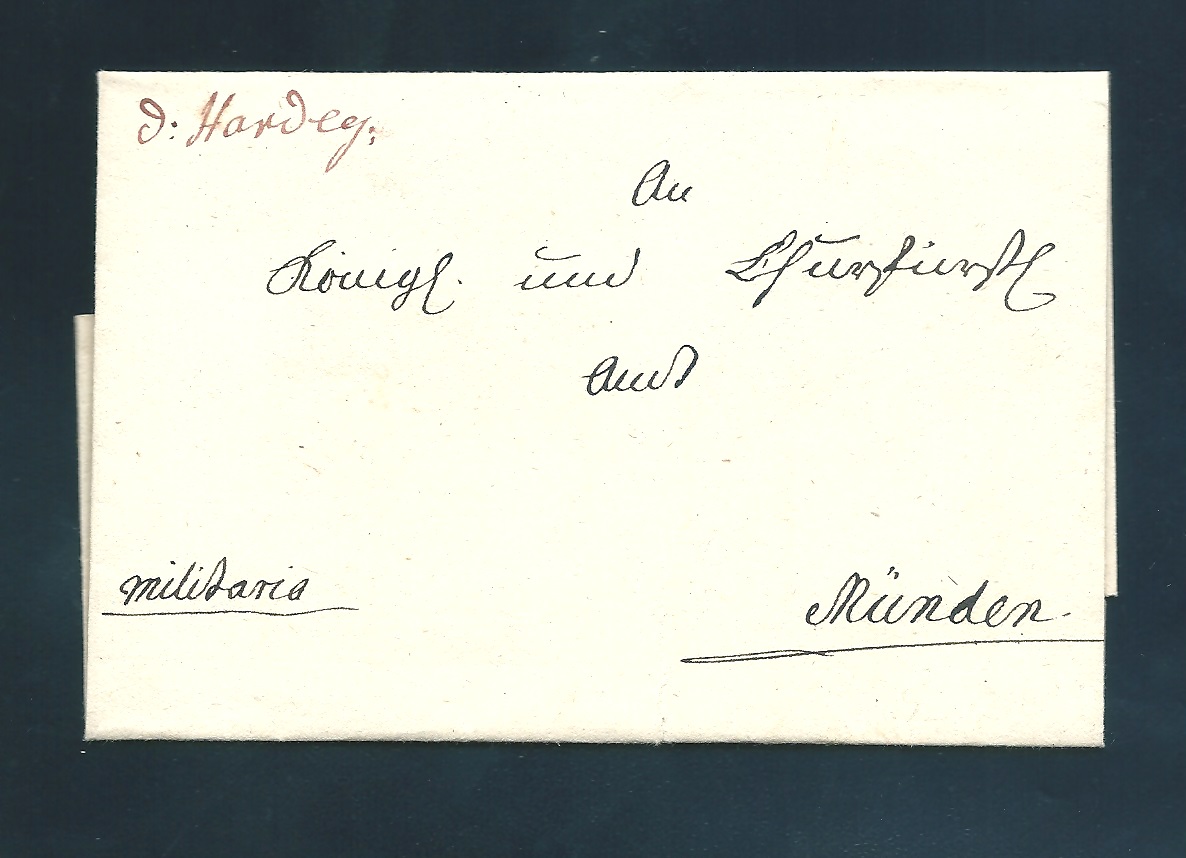 d: Hardeg:
An
Königl. und Churfürstl
Amt
militaria
Münden.